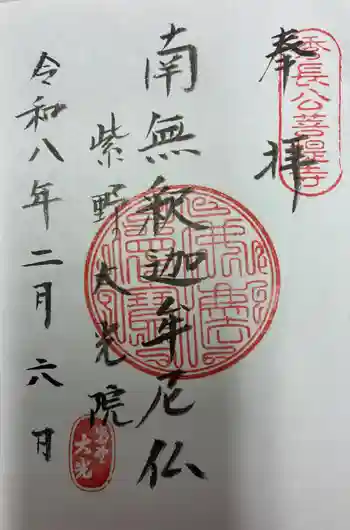 奉拝
秀長公菩提寺
南無釈迦牟尼仏
紫野 大光院
令和八年二月六日
大光